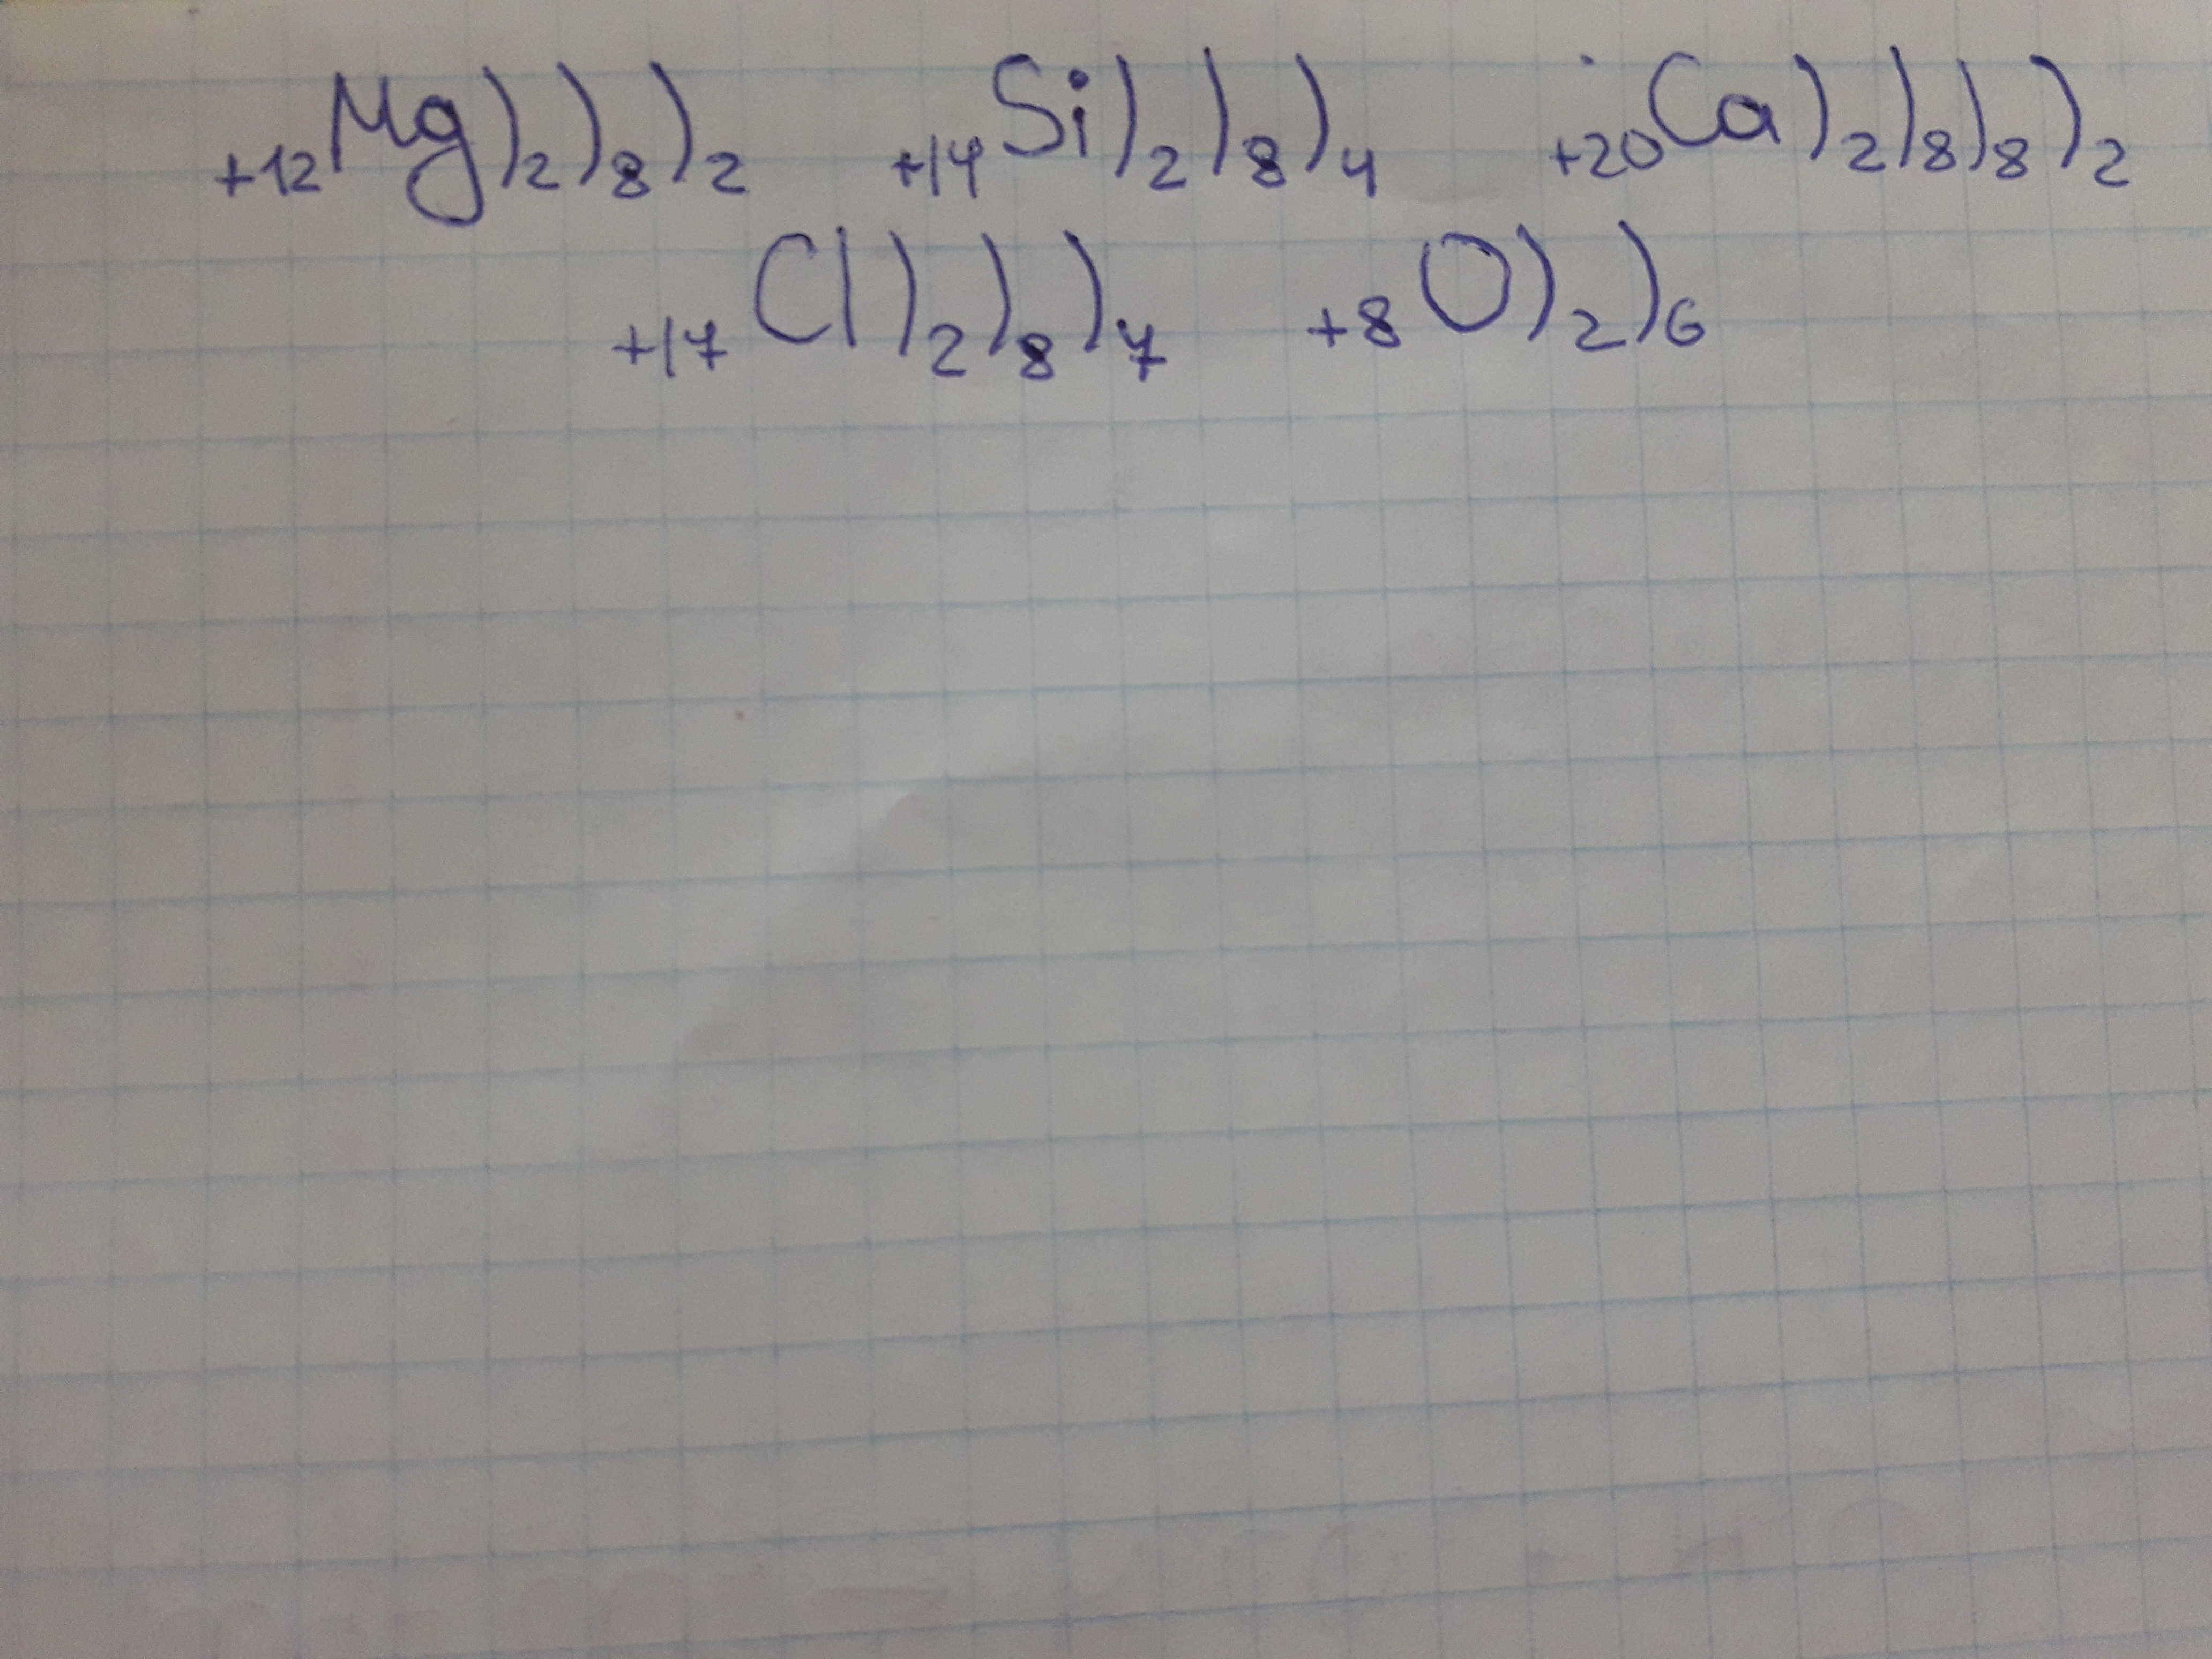 +12Mg)2)8)2 +14Si)2)8)4 +20Ca)2)8)8)2
+17Cl)2)8)7 +8O)2)6